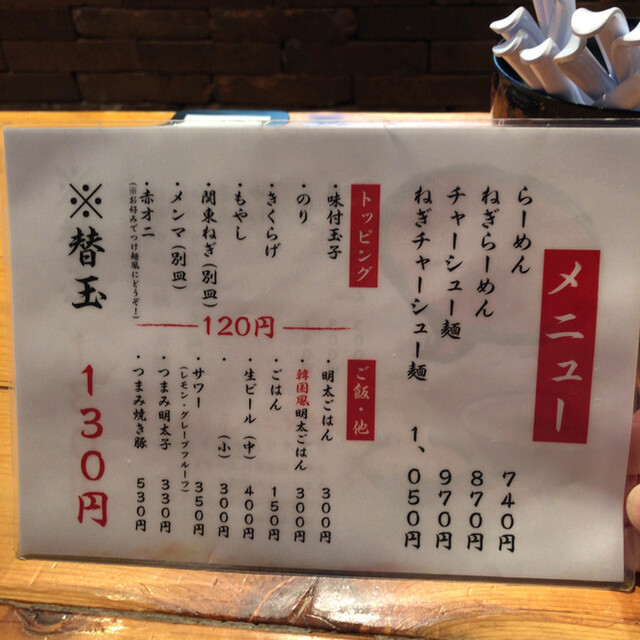 メニュー
らーめん 740円
ねぎらーめん 870円
チャーシュー麺 970円
ねぎチャーシュー麺 1、050円
トッピング
・味付玉子
・のり
・きくらげ
・もやし
・関東ねぎ(別皿)
・メンマ(別皿)
・赤オニ
(※お好みでつけ麺風にどうぞ!)
120円
ご飯・他
・明太ごはん 300円
・韓国風明太ごはん 300円
・ごはん 150円
・生ビール(中) 400円
・ (小) 300円
・サワー 350円
(レモン・グレープフルーツ)
・つまみ明太子 330円
・つまみ焼き豚 530円
※替玉 130円